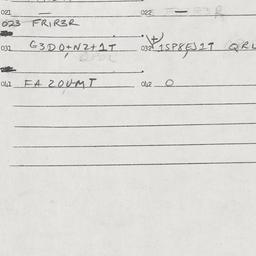 021 — 022 —
023 FRIR3R
031 G3DO+NZ+1T 032 1SP8EJ1T QRL
041 FA 20UMT 042 O